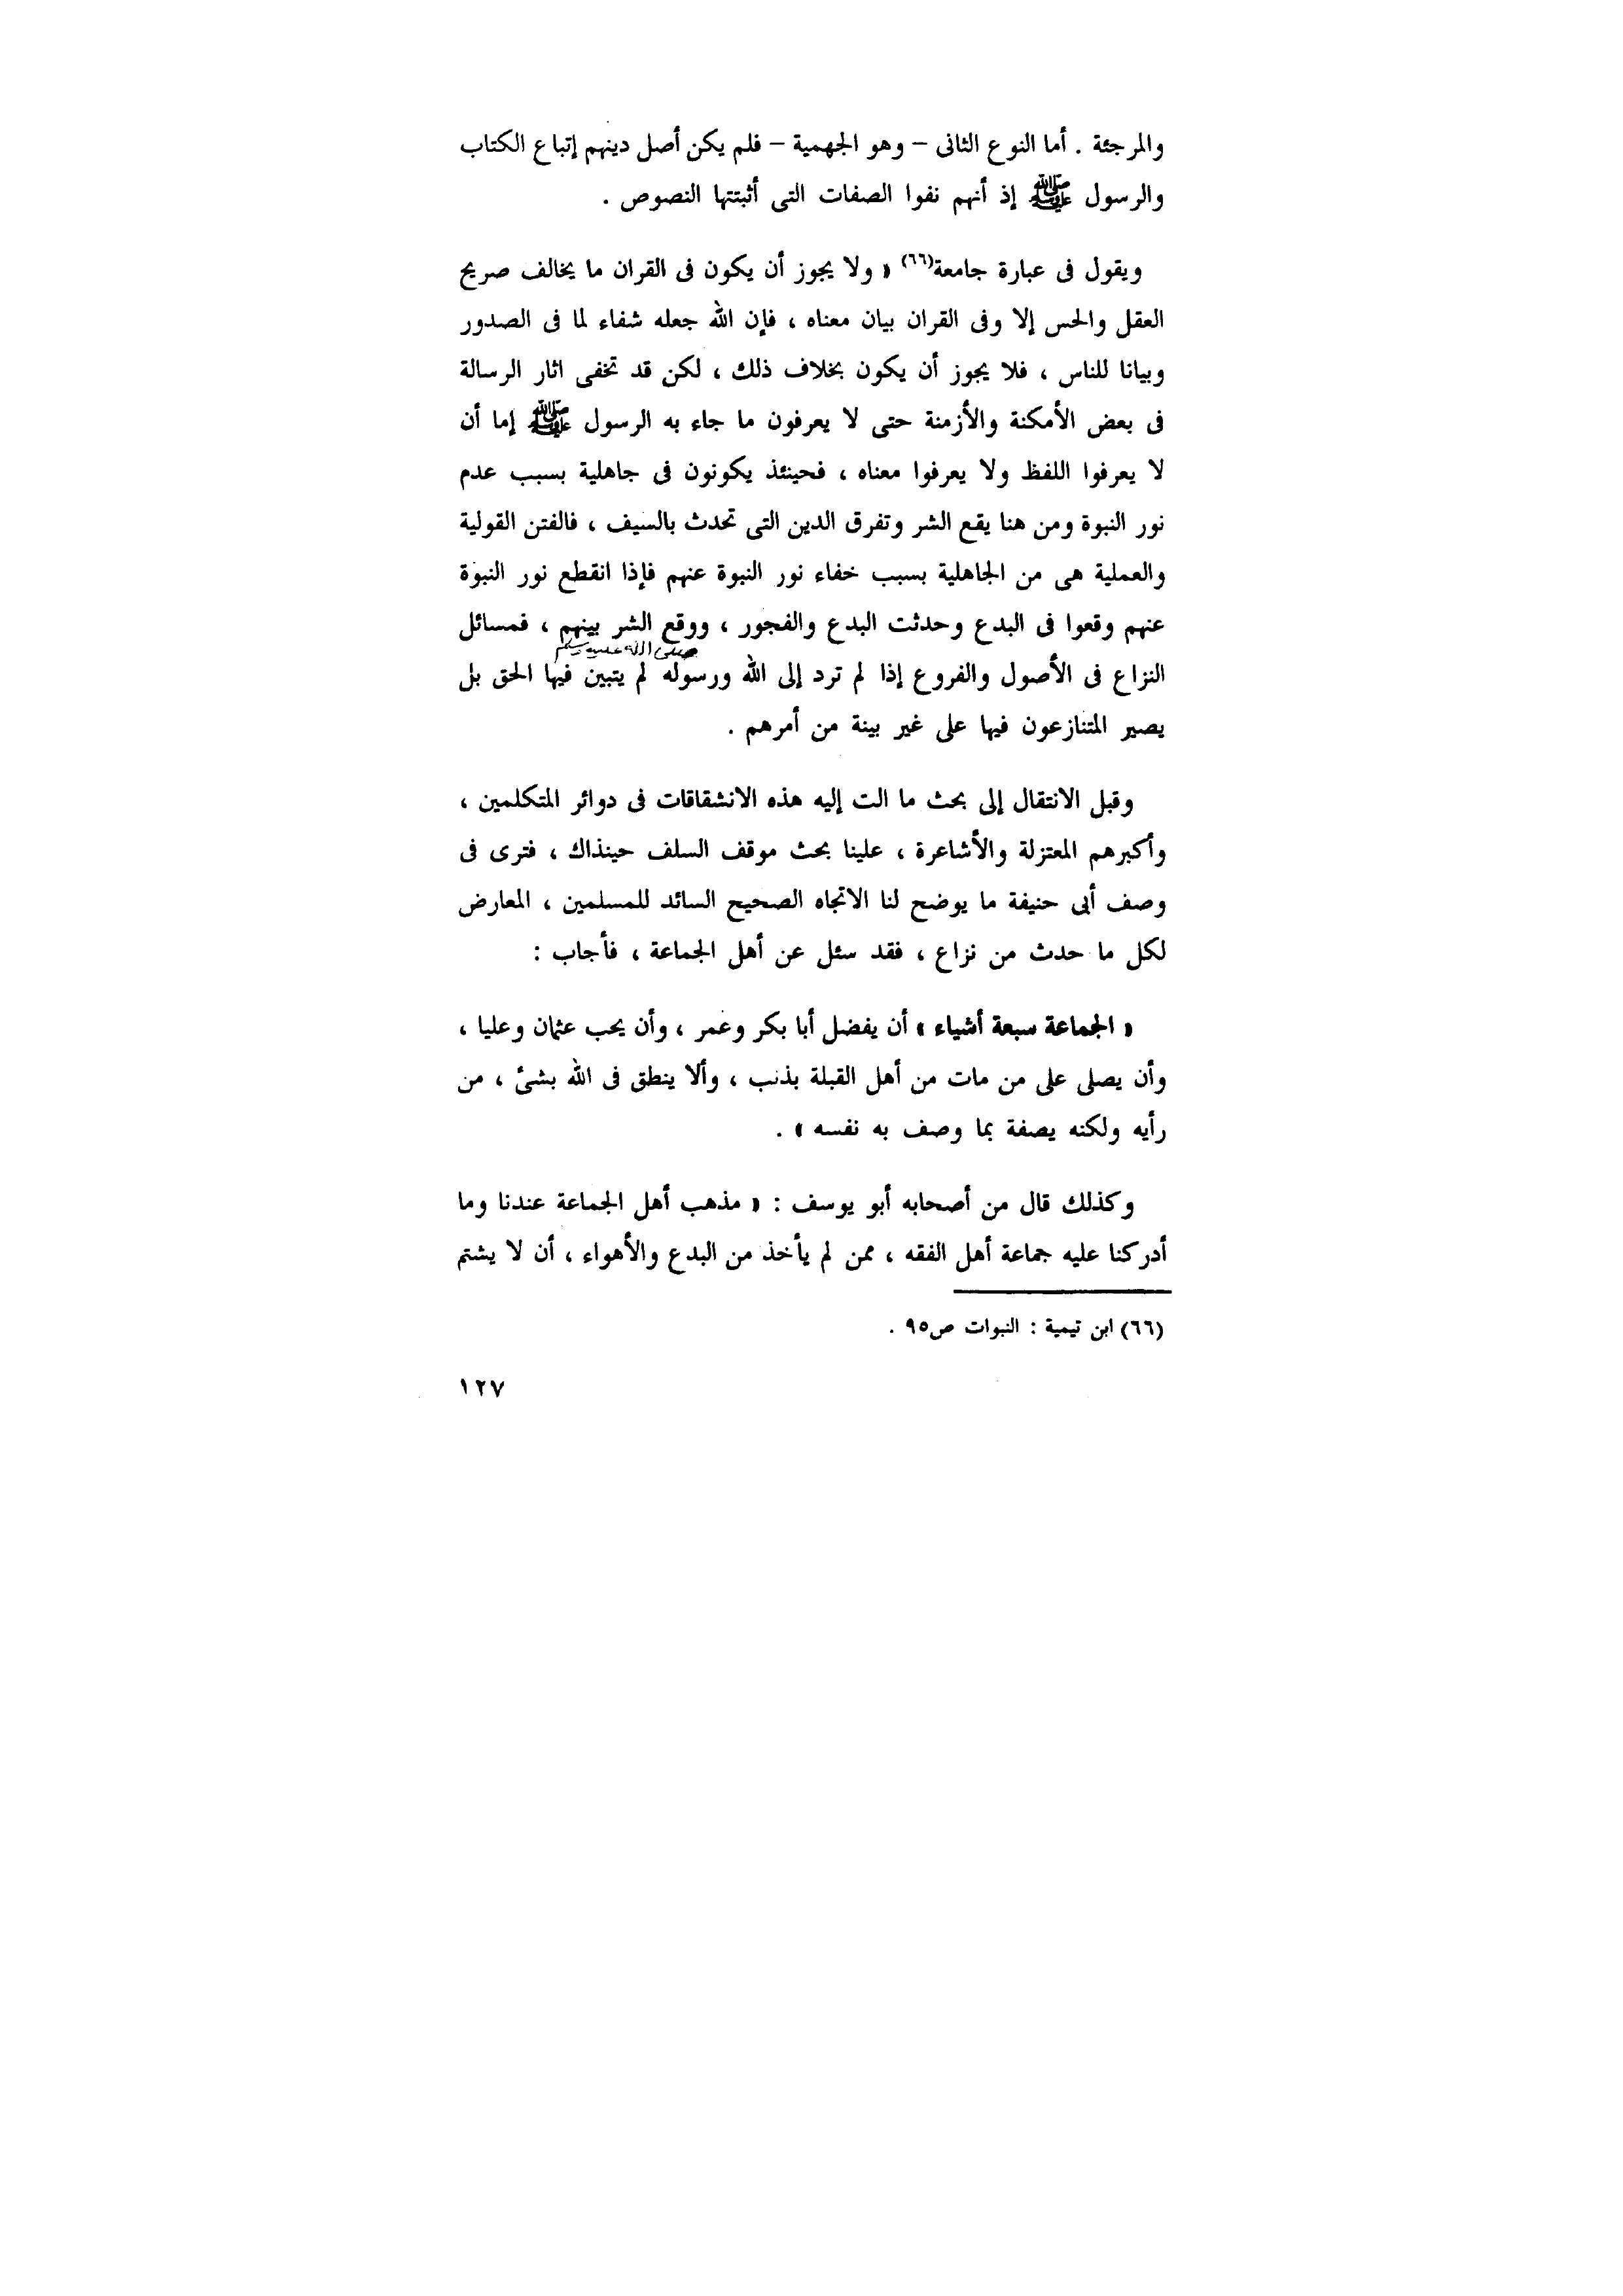 والمرجئة . أما النوع الثانى – وهو الجهمية – فلم يكن أصل دينهم إتباع الكتاب
والرسول ﷺ إذ أنهم نفوا الصفات التى أثبتتها النصوص .
ويقول فى عبارة جامعة(٦٦) « ولا يجوز أن يكون فى القران ما يخالف صريح
العقل والحس إلا وفى القران بيان معناه ، فإن الله جعله شفاء لما فى الصدور
وبيانا للناس ، فلا يجوز أن يكون بخلاف ذلك ، لكن قد تخفى اثار الرسالة
فى بعض الأمكنة والأزمنة حتى لا يعرفون ما جاء به الرسول ﷺ إما أن
لا يعرفوا اللفظ ولا يعرفوا معناه ، فحينئذ يكونون فى جاهلية بسبب عدم
نور النبوة ومن هنا يقع الشر وتفرق الدين التى تحدث بالسيف ، فالفتن القولية
والعملية هى من الجاهلية بسبب خفاء نور النبوة عنهم فإذا انقطع نور النبوة
عنهم وقعوا فى البدع وحدثت البدع والفجور ، ووقع الشر بينهم ، فمسائل
صلى الله عليه وسلم
النزاع فى الأصول والفروع إذا لم ترد إلى الله ورسوله لم يتبين فيها الحق بل
يصير المتنازعون فيها على غير بينة من أمرهم .
وقبل الانتقال إلى بحث ما الت إليه هذه الانشقاقات فى دوائر المتكلمين ،
وأكبرهم المعتزلة والأشاعرة ، علينا بحث موقف السلف حينذاك ، فترى فى
وصف أبى حنيفة ما يوضح لنا الاتجاه الصحيح السائد للمسلمين ، المعارض
لكل ما حدث من نزاع ، فقد سئل عن أهل الجماعة ، فأجاب :
« الجماعة سبعة أشياء » أن يفضل أبا بكر وعمر ، وأن يحب عثمان وعليا ،
وأن يصلى على من مات من أهل القبلة بذنب ، وألا ينطق فى الله بشئ ، من
رأيه ولكنه يصفة بما وصف به نفسه » .
وكذلك قال من أصحابه أبو يوسف : « مذهب أهل الجماعة عندنا وما
أدركنا عليه جماعة أهل الفقه ، ممن لم يأخذ من البدع والأهواء ، أن لا يشتم
(٦٦) ابن تيمية : النبوات ص٩٥ .
١٢٧